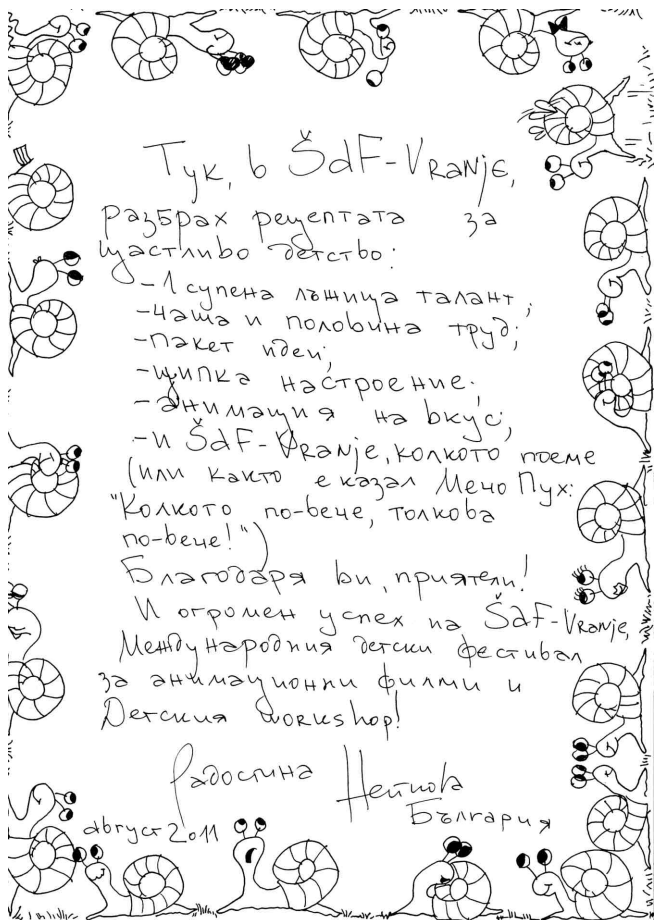 Тук, в ŠdF-VRANJE,
разбрах рецептата за
щастливо детство:
-1 супена лъжица талант;
-чаша и половина труд;
-пакет идеи;
-щипка настроение;
-анимация на вкус;
-и ŠdF-VRANJE, колкото поеме
(или както е казал Мечо Пух:
"Колкото по-вече, толкова
по-вече!")
Благодаря ви, приятели!
И огромен успех на ŠdF-VRANJE,
Международния детски фестивал
за анимационни филми и
Детския workshop!
Радостина Нейкова
България
август 2011